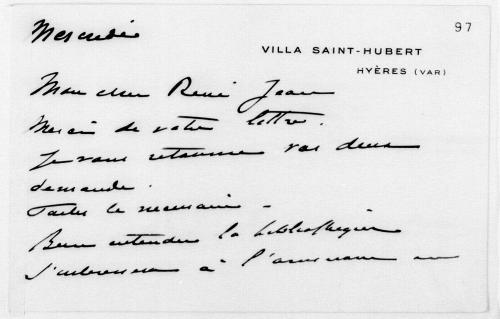 97
Mercredi
VILLA SAINT-HUBERT
HYÈRES (VAR)
Mon cher René Jean
Merci de votre lettre.
Je vous retourne vos deux
demande.
Faites le nécessaire -
Bien entendu la bibliothèque
s'intéressera à l'